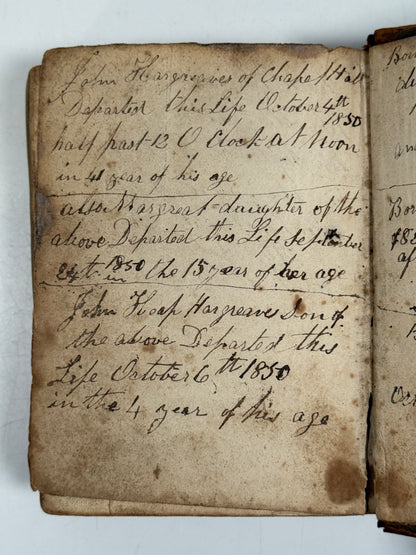 John Hargreaves of Chapel Hill
Departed this Life October 4th
1850
half past 12 O Clock at Noon
in 41 year of his age
also Margreat daughter of the
above Departed this Life September
24th 1850 in the 15 year of her age
John Heap Hargreaves Son of
the above Departed this
Life October 6th 1850
in the 4 year of his age
Bor
Bor
Oct